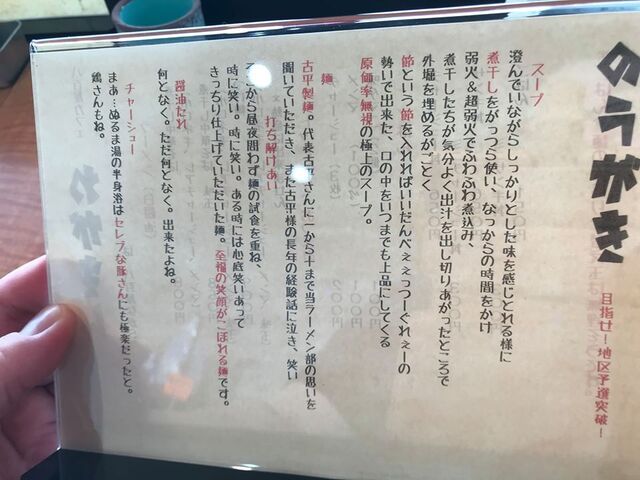 のうがき
目指せ!地区予選突破!
スープ
澄んでいながらしっかりとした味を感じとれる様に
煮干しをがっつら使い、なっからの時間をかけ
弱火&超弱火でふわふわ煮込み、
煮干したちが気分よく出汁を出し切りあがったところで
外堀を埋めるがごとく
節という節を入れればいいだんべぇぇっつーぐれぇーの
勢いで出来た、口の中をいつまでも上品にしてくる
原価率無視の極上のスープ。
麺
古平製麺。代表古平さんに一から十まで当ラーメン部の思いを
聞いていただき、また古平様の長年の経験話に泣き、笑い
打ち解けあい
そこから昼夜問わず麺の試食を重ね、
時に笑い。時に笑い。ある時には心底笑いあって
きっちり仕上げていただいた麺。至福の笑顔がこぼれる麺です。
醤油だれ
何となく。ただ何となく。出来たよね。
チャーシュー
まあ…ぬるま湯の半身浴はセレブな豚さんにも極楽だったと。
鶏さんもね。